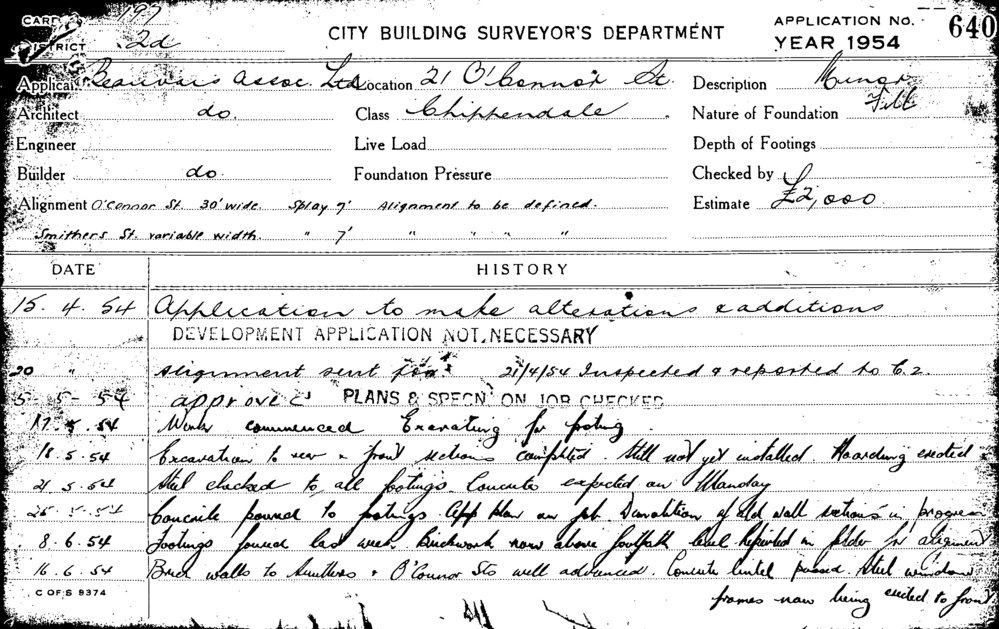 CARD 197
DISTRICT 2d
CITY BUILDING SURVEYOR'S DEPARTMENT
APPLICATION No. 640
YEAR 1954
Applicant Assoc. Ltd Location 21 O'Connor St. Description Minor
Architect do. Class Chippendale Nature of Foundation Fill
Engineer Live Load Depth of Footings
Builder do. Foundation Pressure Checked by
Alignment O'Connor St. 30' wide. Splay 7' Alignment to be defined. Estimate £2,000
Smithers St. variable width. " 7' " " " "
DATE HISTORY
15. 4. 54 Application to make alterations & additions
DEVELOPMENT APPLICATION NOT NECESSARY
20 " Alignment sent for 21/4/54 Inspected & reported to C.2.
5 - 5 - 54 approved PLANS & SPECN ON JOB CHECKED
17. 5. 54 Work commenced Excavating for footing
18. 5. 54 Excavation to rear & front sections completed. Still not yet installed. Hoarding erected
21. 5. 54 Steel checked to all footings Concrete expected on Monday
25. 5. 54 Concrete poured to footings App plan on job Demolition of old wall sections in progress
8. 6. 54 Footings poured last week Brickwork now above footpath level Reported in folder for alignment
16. 6. 54 Brick walls to Smithers & O'Connor Sts well advanced. Concrete lintel poured. Steel window
frames now being erected to front
C OF S 9374